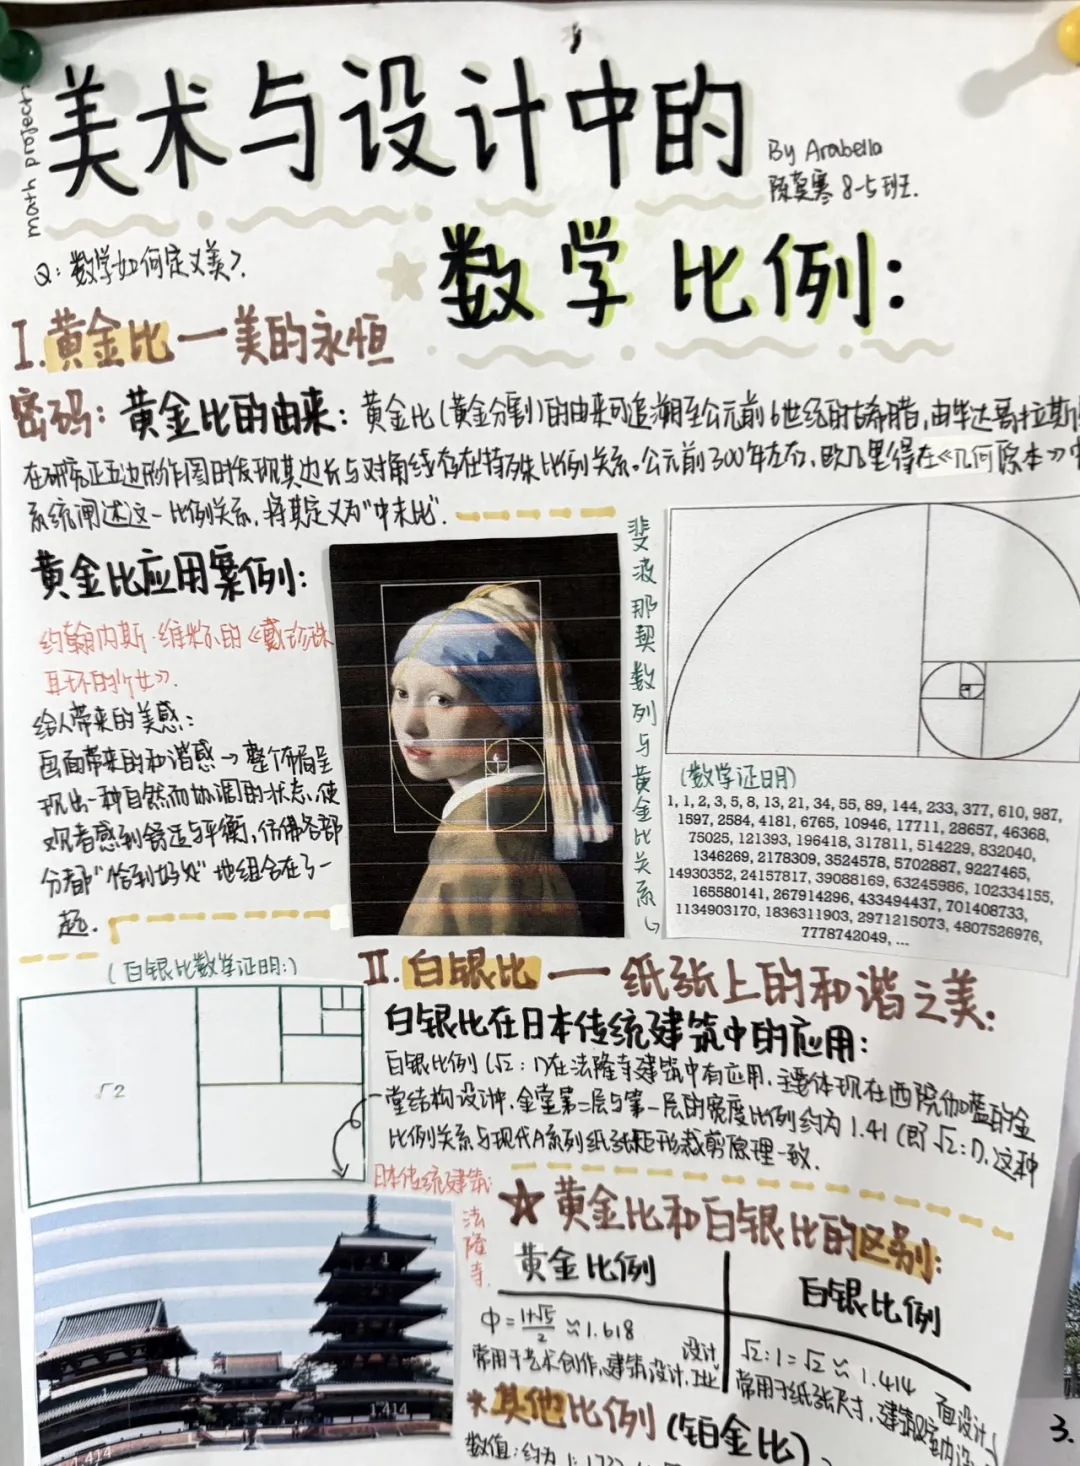 math project
美术与设计中的
By Arabella
陈 寒 8-5班.
数学比例:
Q: 数学如何定义美?
I. 黄金比 — 美的永恒
密码: 黄金比的由来: 黄金比(黄金分割)的由来可追溯至公元前6世纪的古希腊,由毕达哥拉斯
在研究正五边形作图时发现其边长与对角线存在特殊比例关系。公元前300年左右,欧几里得在《几何原本》中
系统阐述这一比例关系,将其定义为"中末比".
黄金比应用案例:
约翰内斯·维米尔的《戴珍珠
耳环的少女》.
给人带来的美感:
画面带来的和谐感→整个布局呈
现出一种自然而协调的状态,使
观者感到舒适与平衡,仿佛各部
分都"恰到好处"地组合在了一
起.
斐波那契数列与黄金比关系
(数学证明)
1, 1, 2, 3, 5, 8, 13, 21, 34, 55, 89, 144, 233, 377, 610, 987,
1597, 2584, 4181, 6765, 10946, 17711, 28657, 46368,
75025, 121393, 196418, 317811, 514229, 832040,
1346269, 2178309, 3524578, 5702887, 9227465,
14930352, 24157817, 39088169, 63245986, 102334155,
165580141, 267914296, 433494437, 701408733,
1134903170, 1836311903, 2971215073, 4807526976,
7778742049, ...
(白银比数学证明:)
√2
II. 白银比 — 纸张上的和谐之美:
白银比在日本传统建筑中的应用:
白银比例(√2:1)在法隆寺建筑中有应用,主要体现在西院伽蓝的金
堂结构设计中,金堂第二层与第一层的宽度比例约为1.41(即√2:1).这种
比例关系与现代A系列纸张矩形裁剪原理一致.
日本传统建筑:
法隆寺.
1
1
1.414
1.414
☆黄金比和白银比的区别:
黄金比例
白银比例
Φ=1+√5/2≈1.618
常用于艺术创作,建筑设计,工业
设计.
√2:1=√2≈1.414
常用于纸张尺寸,建筑及室内设
面设计
*其他比例(铂金比)
数值:约为
3.